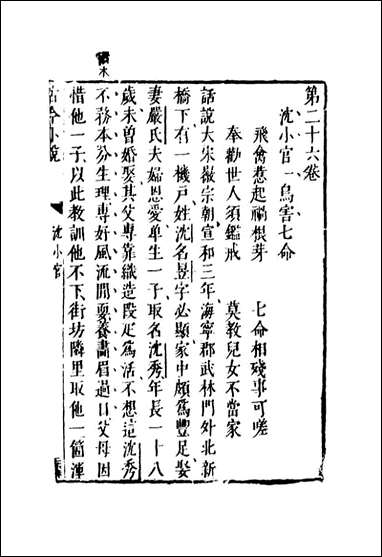 第二十六卷
沈小官一鳥害七命
飛禽惹起禍根芽　七命相殘事可嗟
奉勸世人須鑑戒　莫教兒女不當家
話說大宋徽宗朝宣和三年海寧郡武林門外北新
橋下有一機戶姓沈名昱字必顯家中頗爲豐足娶
妻嚴氏夫婦恩愛單生一子取名沈秀年長一十八
歲未曾婚娶其父專靠織造段疋爲活不想這沈秀
不務本分生理專好風流閒耍養畫眉過日父母因
惜他一子以此教訓他不下街坊隣里取他一箇渾
古今小說
沈小官